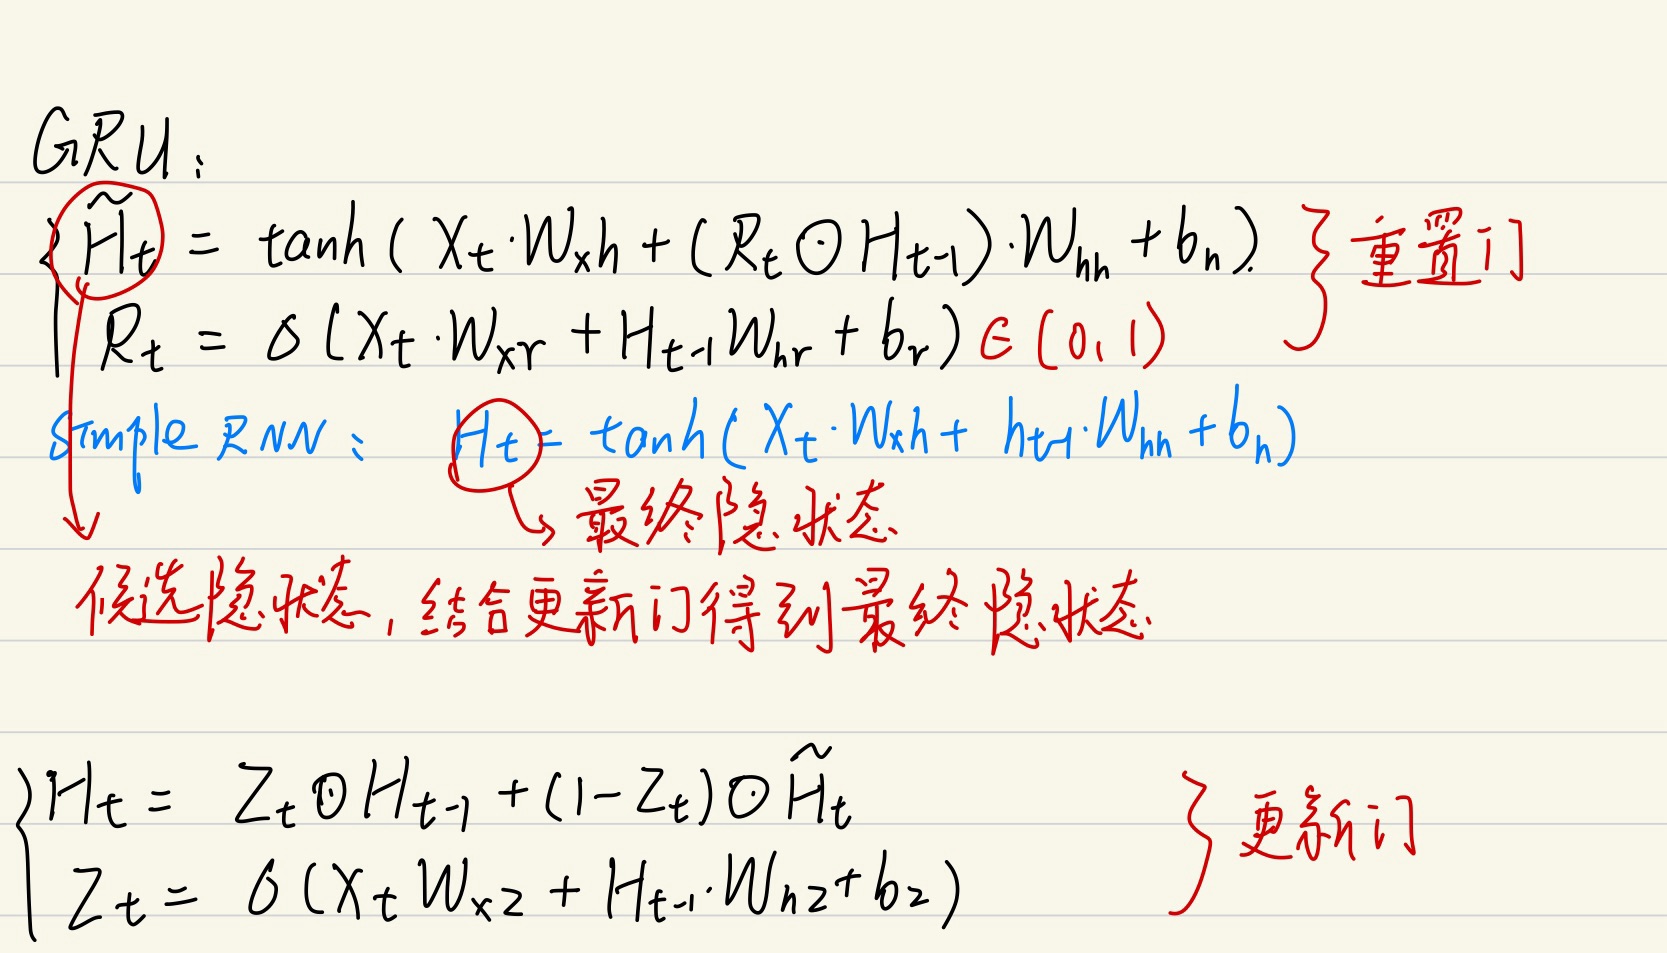 GRU:
H̃t = tanh( Xt·Wxh + (Rt⊙Ht-1)·Whh + bh) 重置门
Rt = σ(Xt·Wxr + Ht-1Whr + br) ∈ (0,1)
Simple RNN: Ht = tanh( Xt·Wxh + ht-1·Whh + bh)
最终隐状态
候选隐状态,结合更新门得到最终隐状态
Ht = Zt⊙Ht-1 + (1-Zt)⊙H̃t 更新门
Zt = σ(XtWxz + Ht-1·Whz + bz)